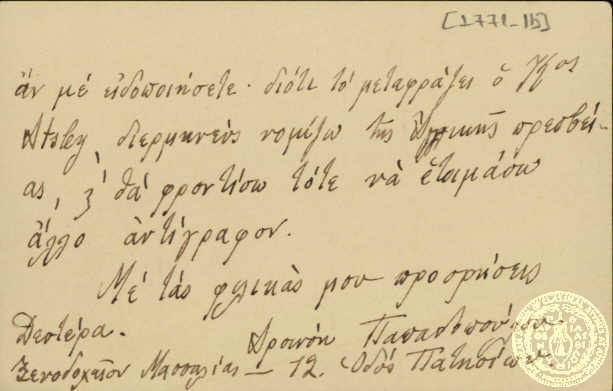 [1771-1b]
ἄν μέ εἰδοποιήσετε· διότι τό μεταφράζει ὁ
διερμηνεύς νομίζω τῆς Ἀγγλικῆς πρεσβεί-
ας, θά φροντίσω τότε νὰ ἑτοιμάσω
ἄλλο ἀντίγραφον.
Μέ τάς φιλικὰς μου προσρήσεις
Δευτέρα.
Ξενοδοχεῖον Μασσαλίας – 12. Ὁδός Πατησίων.